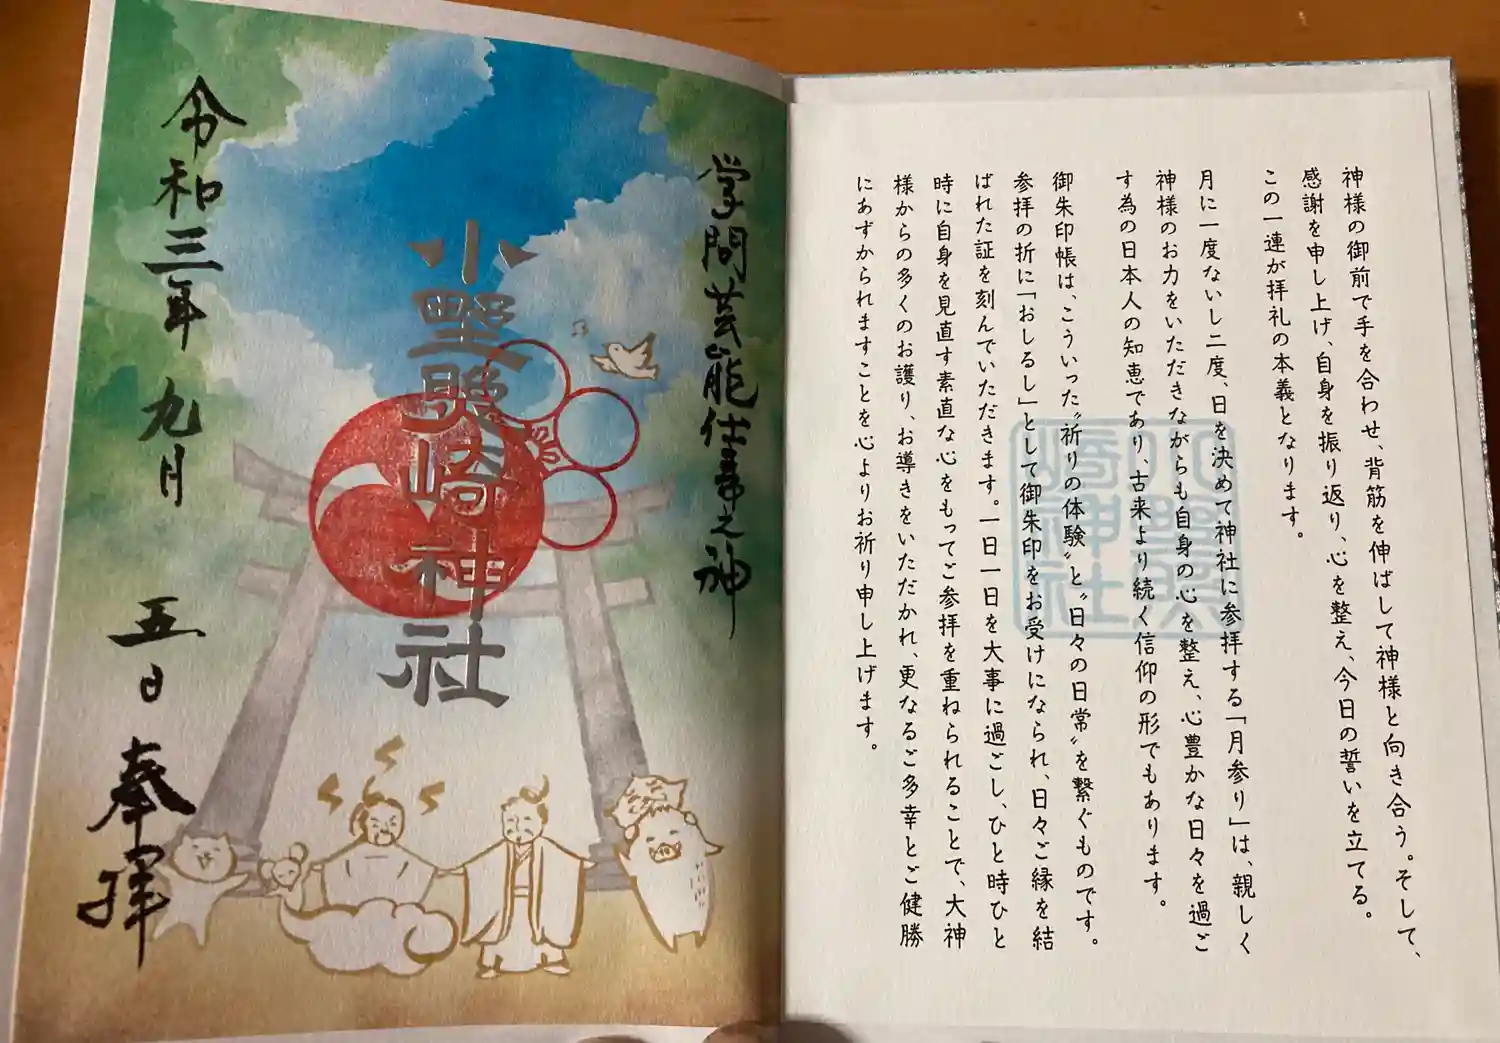 神様の御前で手を合わせ、背筋を伸ばして神様と向き合う。そして、
感謝を申し上げ、自身を振り返り、心を整え、今日の誓いを立てる。
この一連が拝礼の本義となります。
月に一度ないし二度、日を決めて神社に参拝する「月参り」は、親しく
神様のお力をいただきながらも自身の心を整え、心豊かな日々を過ご
す為の日本人の知恵であり、古来より続く信仰の形でもあります。
御朱印帳は、こういった〝祈りの体験〟と〝日々の日常〟を繋ぐものです。
参拝の折に「おしるし」として御朱印をお受けになられ、日々ご縁を結
ばれた証を刻んでいただきます。一日一日を大事に過ごし、ひと時ひと
時に自身を見直す素直な心をもってご参拝を重ねられることで、大神
様からの多くのお護り、お導きをいただかれ、更なるご多幸とご健勝
にあずかられますことを心よりお祈り申し上げます。
小野照
崎神社
学問芸能仕事之神
小野照崎神社
令和三年九月五日奉拝